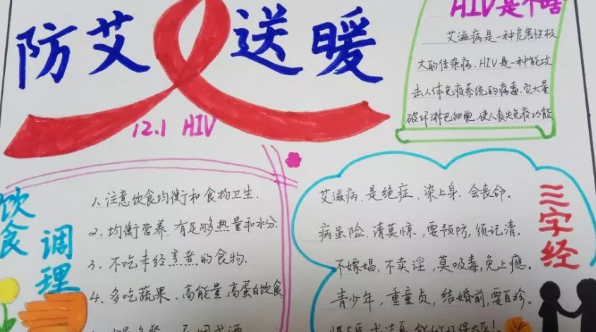 防艾送暖
12.1 HIV
HIV是个啥
艾滋病是一种危害性极
大的传染病,HIV是一种能攻
击人体免疫系统的病毒.它大量
破坏淋巴细胞,使人丧失免疫功能
饮食
调理
1、注意饮食均衡和食物卫生.
2、均衡营养、有足够热量和水分.
3、不吃未经烹煮的食物.
4、多吃蔬果、高能量、高蛋白饮食
三字经
艾滋病,是绝症,染上身,会丧命.
病虽险,清莫惊,要预防,须记清.
不嫖娼,不卖淫,莫吸毒,免上瘾.
青少年,重童贞,结婚前,要自珍.